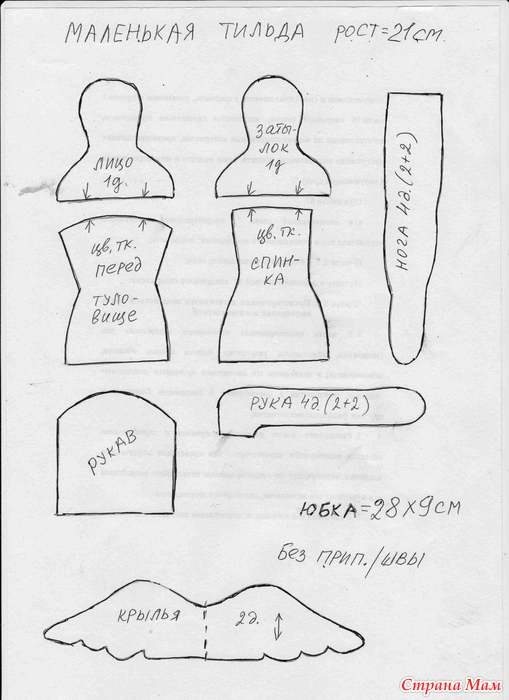 МАЛЕНЬКАЯ ТИЛЬДА РОСТ=21СМ.
ЛИЦО
1д.
ЗАТЫ-
ЛОК
1д
НОГА 4д.(2+2)
ЦВ.ТК.
ПЕРЕД
ТУЛО-
ВИЩЕ
ЦВ.ТК.
СПИН-
КА
РУКАВ
РУКА 4д.(2+2)
ЮБКА=28х9СМ
БЕЗ ПРИП./ШВЫ
КРЫЛЬЯ 2д.
Страна Мам